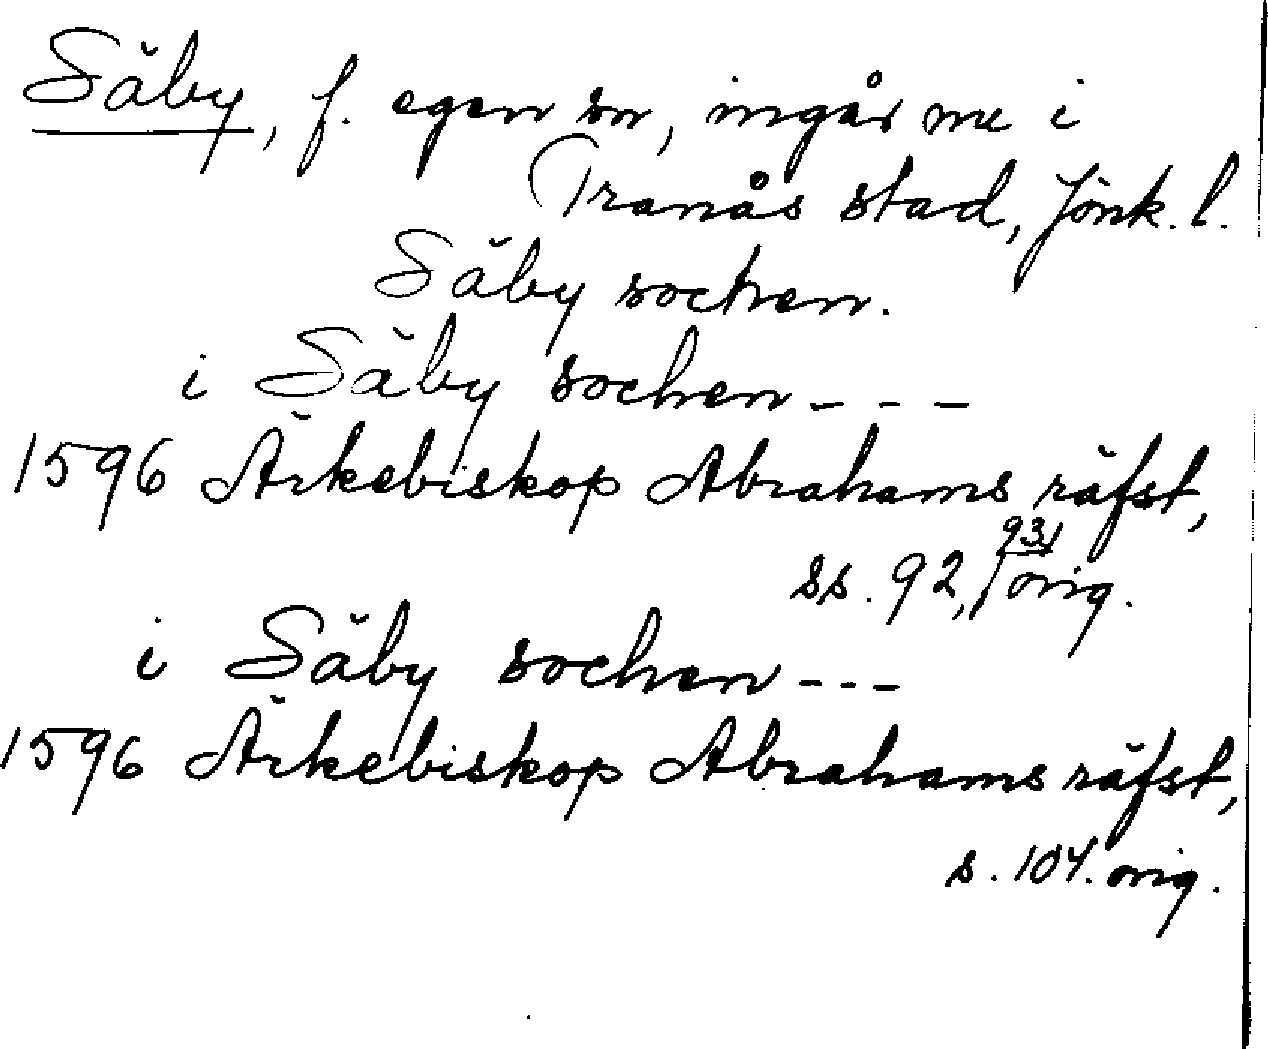 Säby, f. egen sn, ingår nu i
Tranås stad, Jönk. l.
Säby sochen.
i Säby sochen - - -
1596 Ärkebiskop Abrahams räfst,
ss. 92, 93, orig.
i Säby sochen - - -
1596 Ärkebiskop Abrahams räfst,
s. 104. orig.